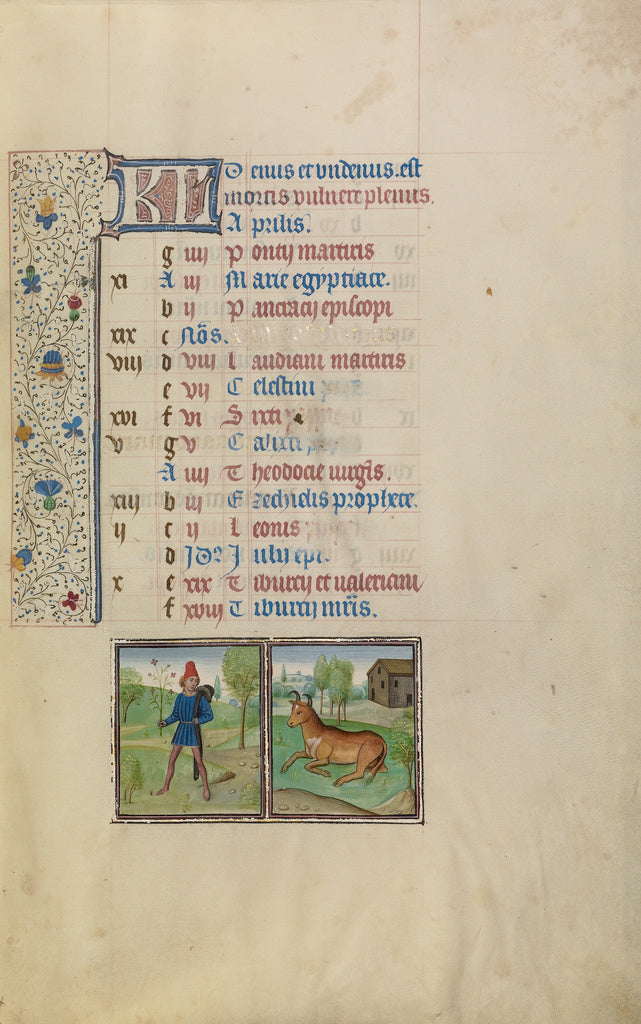 KL Denus et undenus est
mortis vulnere plenus.
Aprilis.
g iiii Pontij martiris
xi A iii Marie egyptiace.
b ii Pancracij episcopi
xix c Nōs.
viii d viii Claudiani martiris
e vii Celestini
xvi f vi Sixti
v g v Calixti
A iiii Theodocie uirgīs.
xiii b iii Ezechielis prophete.
ii c ii Leonis
d Jd9 Julij epī.
x e xix Tiburcij et ualeriani
f xviii Tiburcij mr̄is.